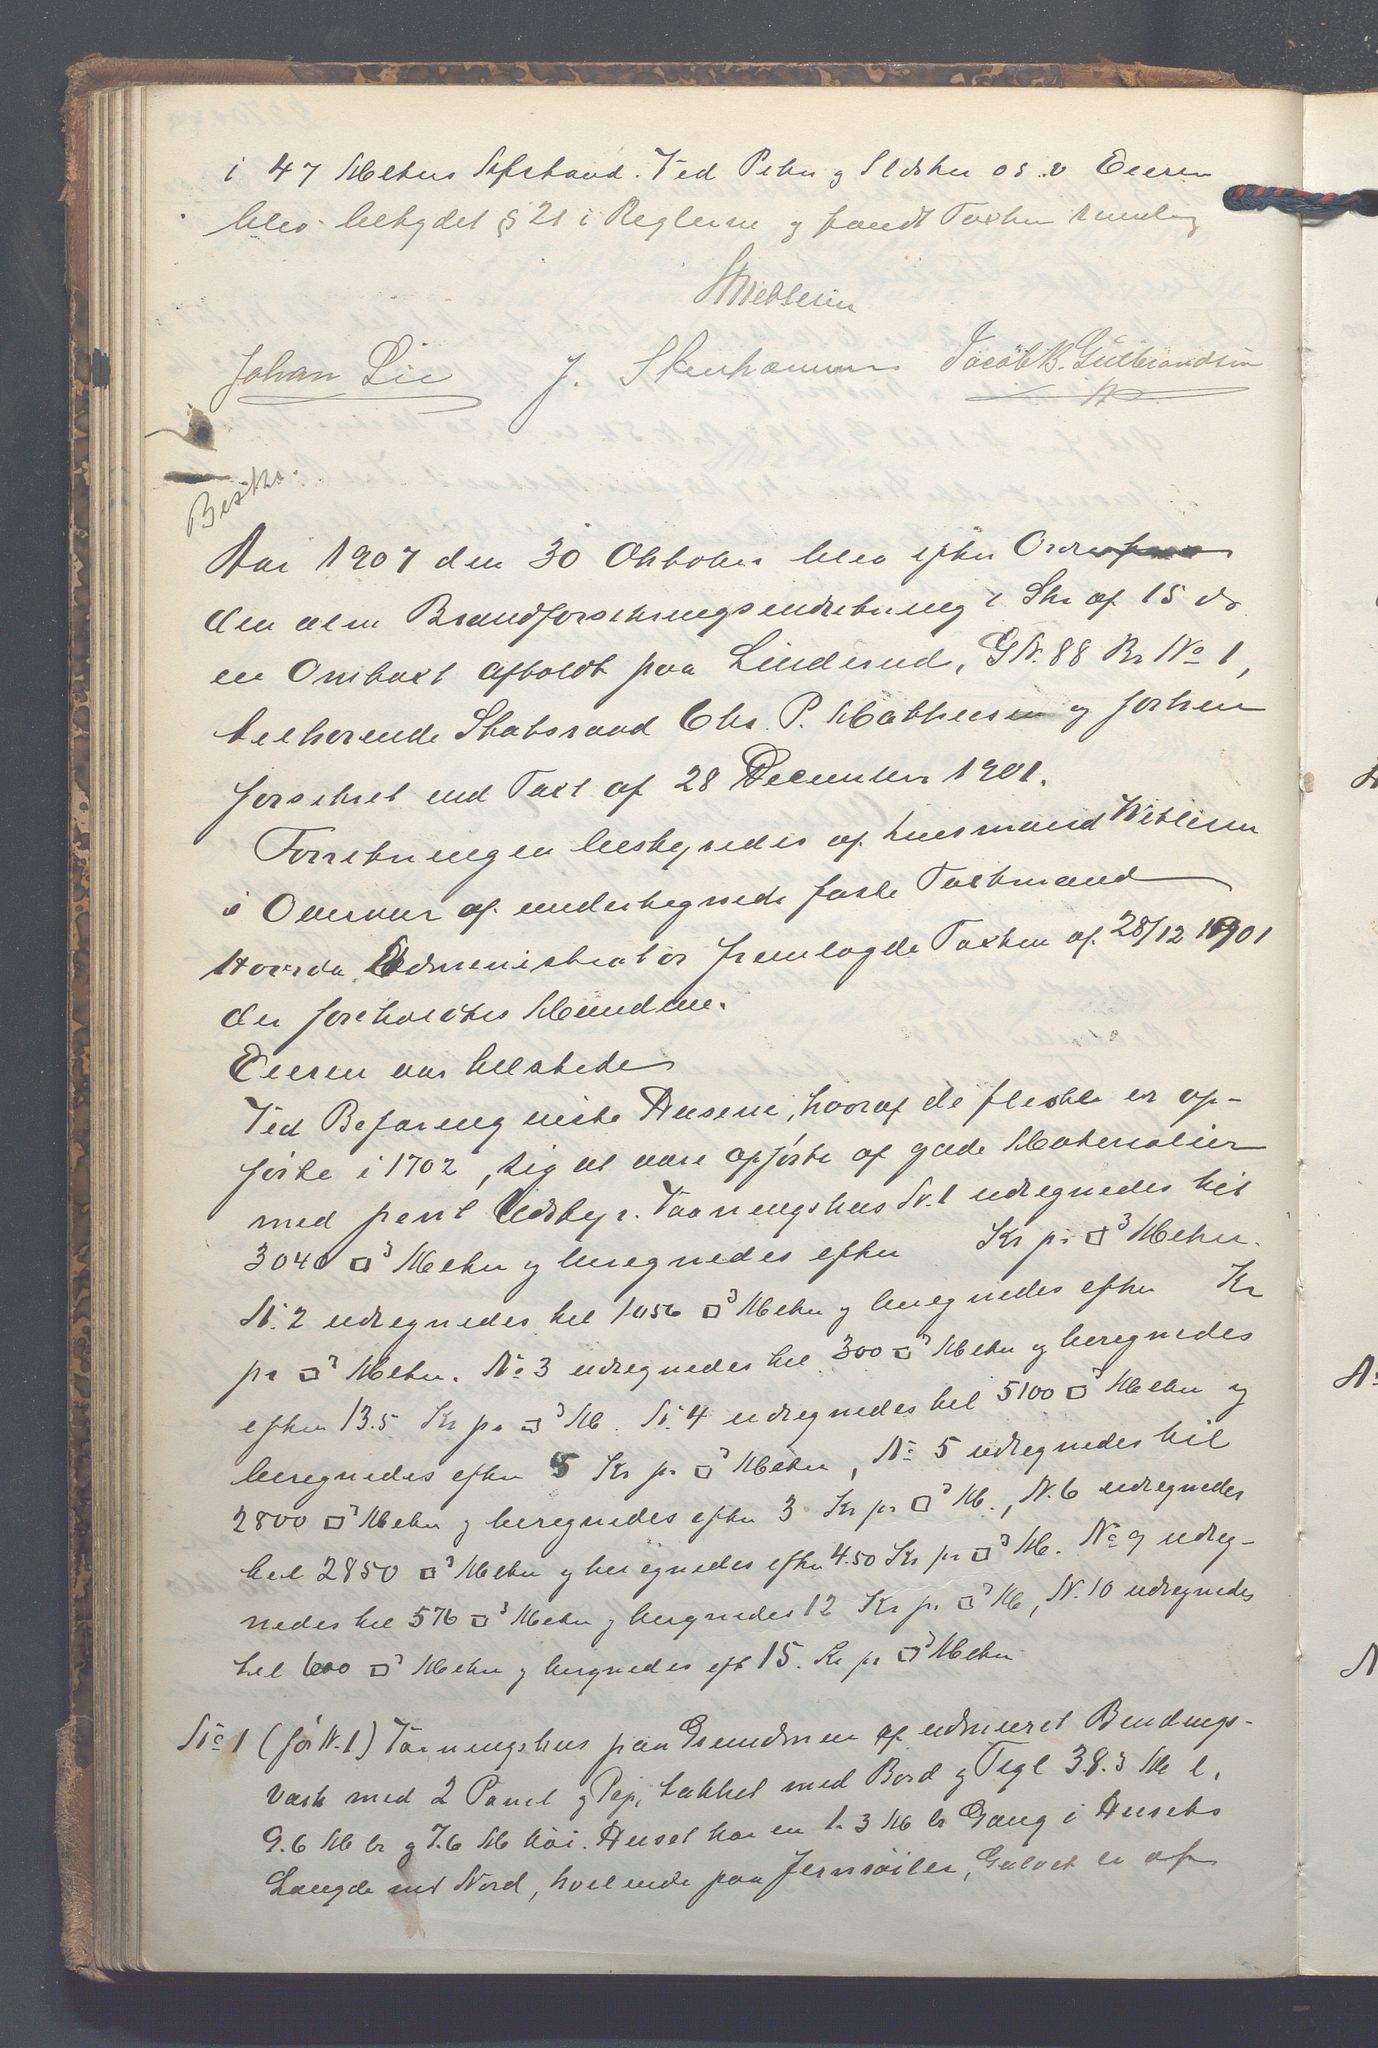 i 47 Meters Afstand. Ved Peter og Ildsteder o s. v Eieren
blev betydet § 21 i Reglerne og fandt Taxten rimelig
Johan Lie J. Stenhammer Jacob K. Gulbrandsen
Beskr.
Aar 1907 den 30 Oktober blev efter Ordre fra
den alm Brandforsikringsindretning i Skr af 15 ds
en Omtaxt afholdt paa Linderud, G N. 88 Br No 1,
tilhørende Statsraad Chr. P. Mathiesen og forhen
forsikret ved Taxt af 28 December 1901.
Forretningen bestyredes af Lensmand
i Overvær af undertegnede faste Taxtmænd
Hovda. Administrator fremlagde Taxten af 28/12 1901
der foreholdtes Mændene.
Eieren var tilstede
Ved Befaring viste Husene, hvoraf de fleste er op-
førte i 1702, sig at være opførte af gode Materialier
med pent Udstyr. Vaaningshus N. 1 udregnedes til
3040 □³ Meter og beregnedes efter Kr pr □³ Meter.
N. 2 udregnedes til 1056 □³ Meter og beregnedes efter Kr
pr □³ Meter. No 3 udregnedes til 300 □³ Meter og beregnedes
efter 13.5 Kr pr □³ M. N. 4 udregnedes til 5100 □³ Meter og
beregnedes efter 5 Kr pr □³ Meter, No 5 udregnedes til
2800 □³ Meter og beregnedes efter 3 Kr pr □³ M., N. 6 udregnedes
til 2850 □³ Meter og beregnedes efter 4.50 Kr pr □³ M. No 9 udreg-
nedes til 576 □³ Meter og beregnedes 12 Kr pr □³ M, N. 10 udregnedes
til 600 □³ Meter og beregnedes eft 15. Kr pr □³ Meter
No 1 (før N. 1) Vaaningshus paa Grundmur af udmuret Bindings-
værk med 2 Panel og Pap, tækket med Bord og Tegl 38.3 M l.
9.6 M br og 7.6 M høi. Huset har en 1.3 M br Gang i Husets
Længde mod Nord, hvilende paa Jernsøiler, Gulvet er af